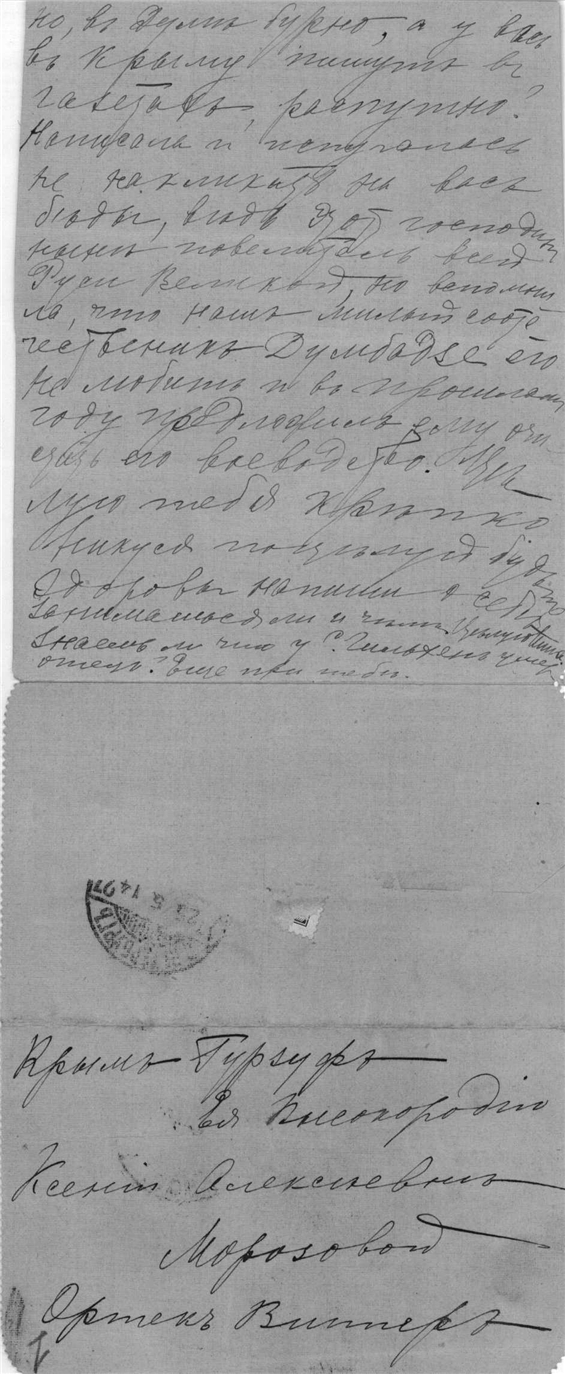 но, въ Думѣ бурно, а у васъ
въ Крыму пишутъ въ
газетахъ, распутно?
Написала и испугалась
не накликать на васъ
бѣды, вѣдь этотъ господинъ
нынѣ повелитель всей
Руси Великой, но вспомни
ла, что нашъ милый соотѣ
чественникъ Думбадзе его
не любитъ и въ прошломъ
году предложилъ ему очи
стить его воеводство. Цѣ
лую тебя крѣпко
поцѣлуй будьте
здоровы напиши о себѣ
занимаешься ли и чѣмъ
знаешь ли что у умеръ
отецъ? Еще при тебѣ.
23 5 14
Крымъ Гурзуфъ
Ея Высокородію
Ксеніи Алексѣевнѣ
Морозовой
Артекъ Виннеръ